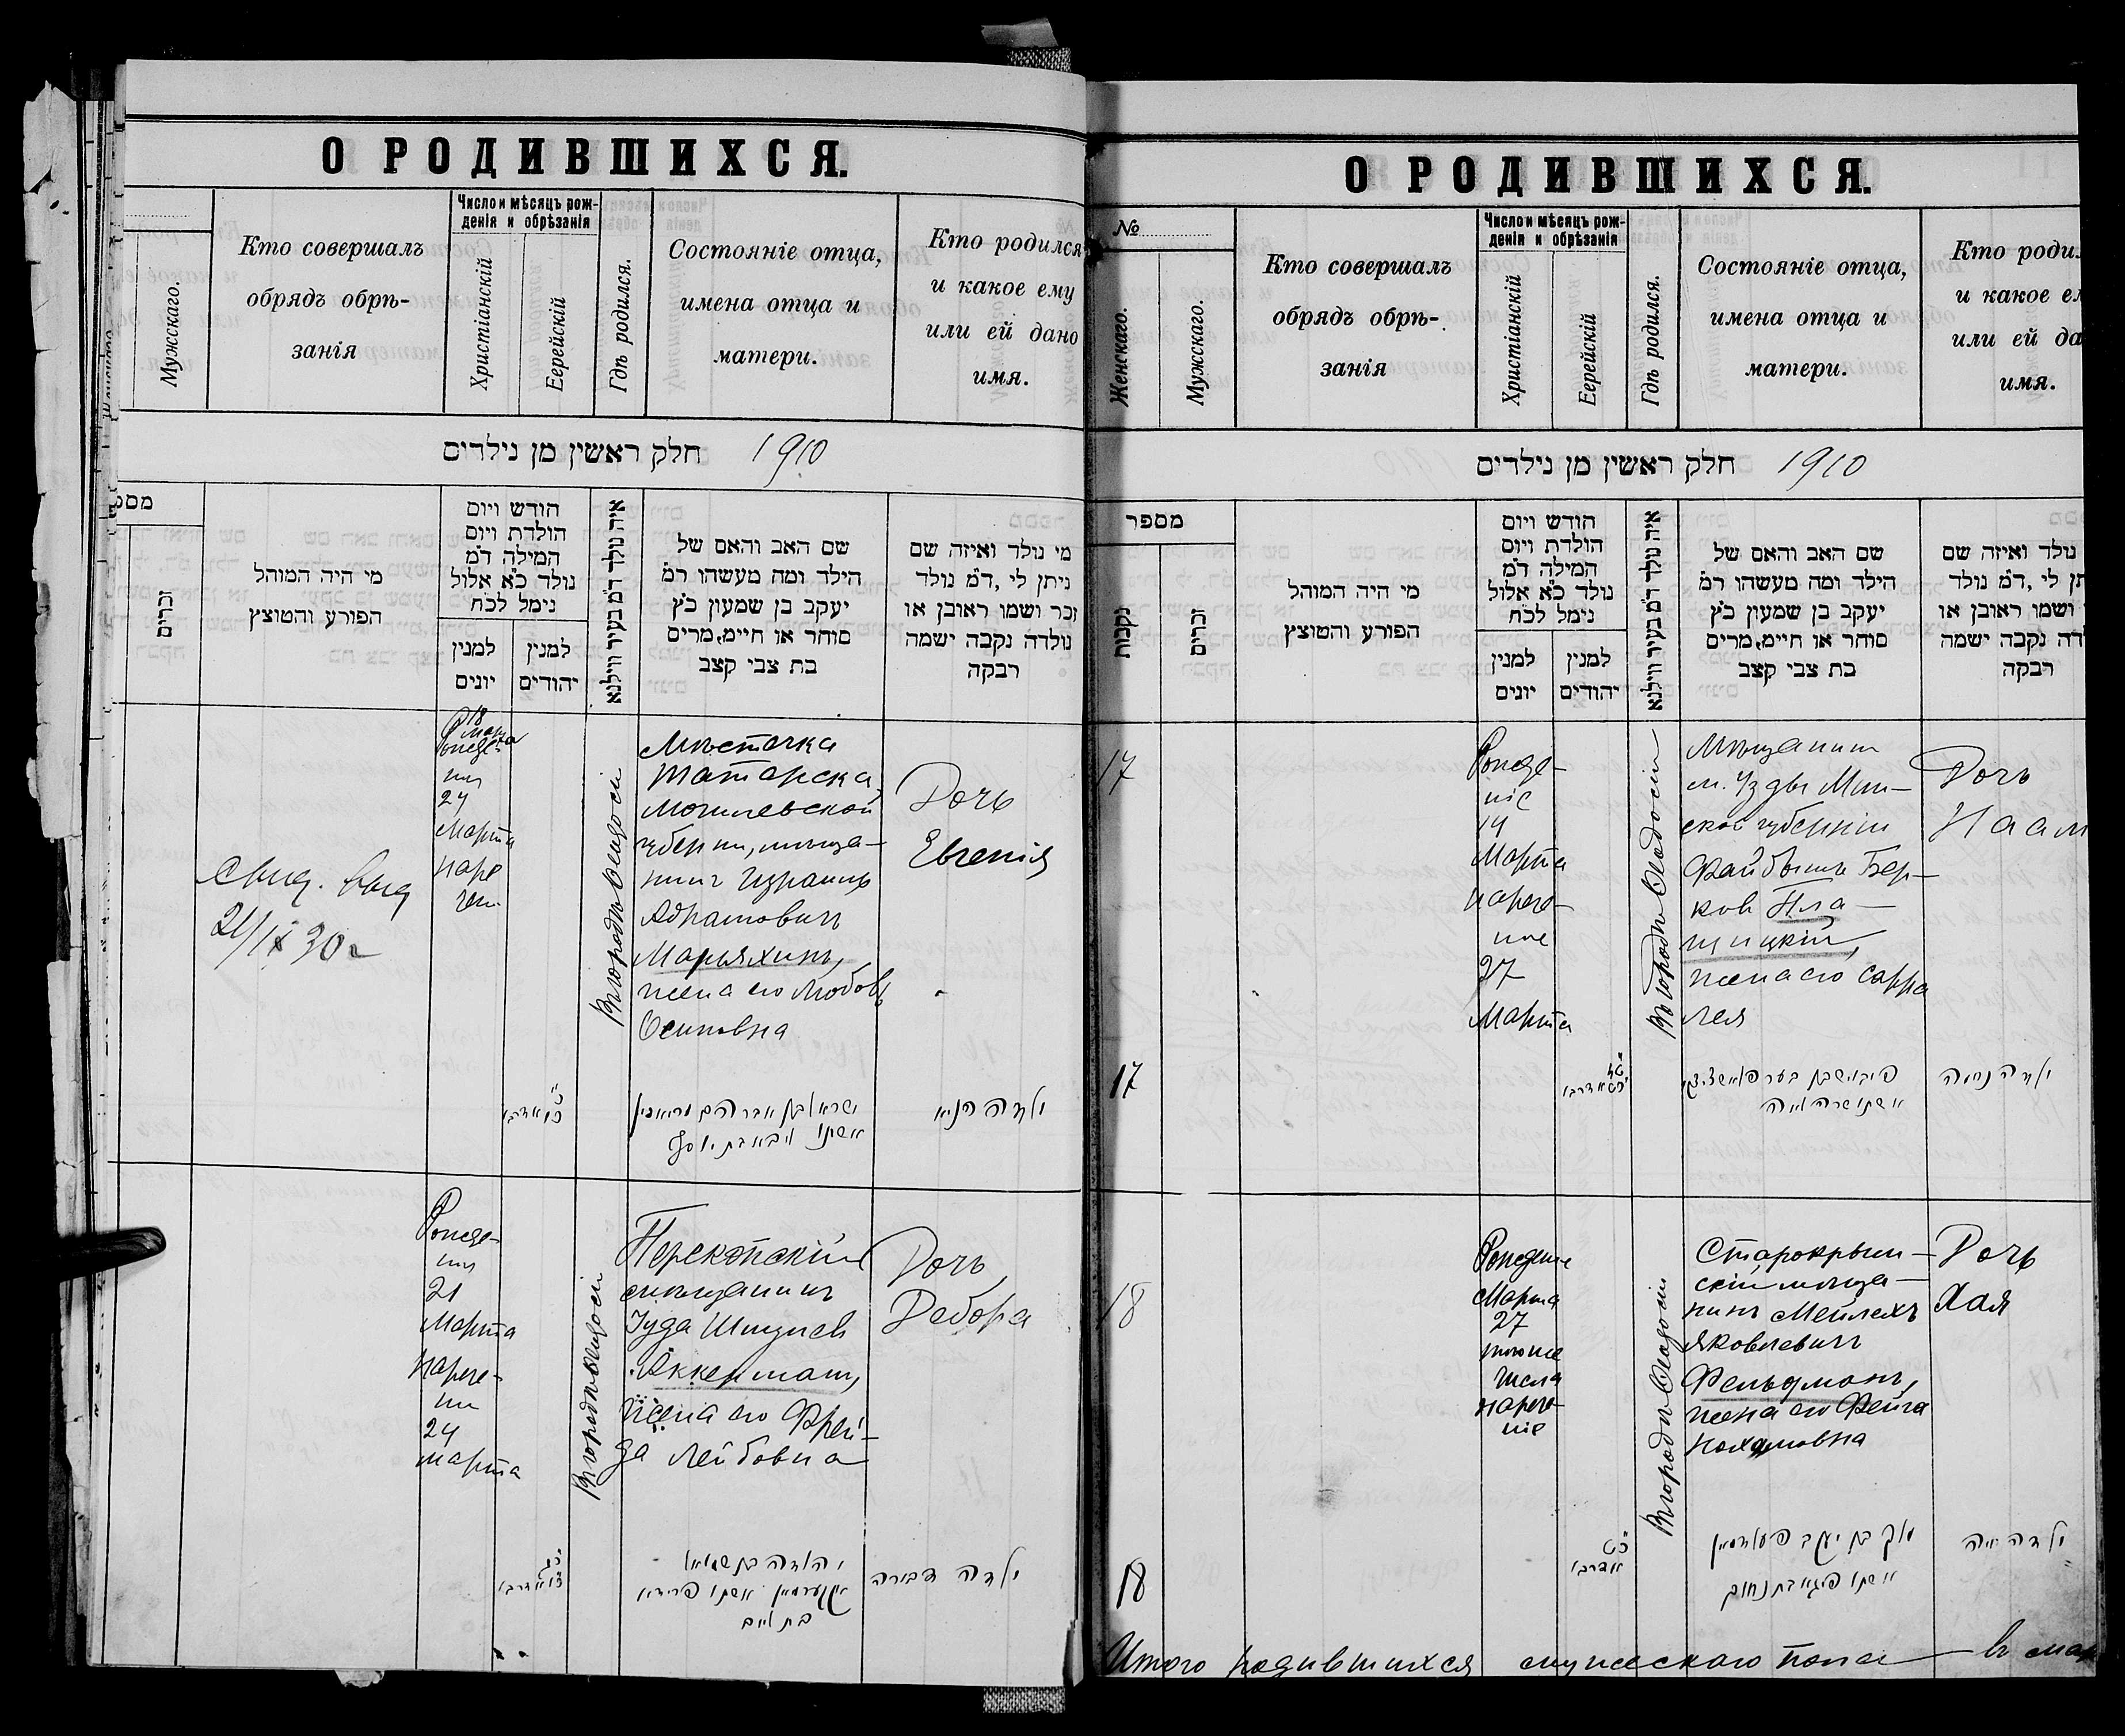 О РОДИВШИХСЯ.
Мужскаго.
Кто совершалъ
обрядъ обрѣ-
занія
Число и мѣсяцъ рож-
денія и обрѣзанія
Христіанскій
Еерейскій
Гдѣ родился.
Состояніе отца,
имена отца и
матери.
Кто родился
и какое ему
или ей дано
имя.
חלק ראשין מן נילדים 1910
מספ
זכרים
מי היה המוהל
הפורע והטוצץ
הודש ויום
הולדת ויום
המילה ד״מ
נולד כ״א אלול
נימל לכ״ח
למנין
יונים
למנין
יהודים
איה נולד ד״מ בעיר ווילנא
שם האב והאם של
הילד ומה מעשהו רמ״
יעקב בן שמעון כ״ץ
סוחר או חיימ, מרים
בת צבי קצב
מי נולד ואיזה שם
ניתן לי, ד״מ נולד
זכר ושמו ראובן או
נולדה נקבה ישמה
רבקה
Свид. выд
21/IX 30 г
18
Марта
24
Марта
наре
чен.
Въ городѣ Ѳеодосіи
Мѣстечка
Татарска,
Могилевской
губерніи, мѣща-
нинъ Израиль
Абрамовичъ
Марьяхинъ,
жена его Любовь
Осиповна
Дочь
Евгенія
ישראל בן אברהם מריאכין
אשתו ליבא בת יוסף
ילדה
Рожде-
нія
21
Марта
нарече-
ніе
24
марта
Въ городѣ Ѳеодосіи
Перекопскій
мѣщанинъ
Іуда Шмулев
Аккерман,
жена его Фрей-
да Лейбовна
Дочь,
Дебора
יהודה בן שמואל
אקערמאן אשתו פריידא
בת לייב
ילדה דבורה
О РОДИВШИХСЯ.
№
Женскаго.
Мужскаго.
Кто совершалъ
обрядъ обрѣ-
занія
Число и мѣсяцъ рож-
денія и обрѣзанія
Христіанскій
Еерейскій
Гдѣ родился.
Состояніе отца,
имена отца и
матери.
Кто роди
и какое е
или ей да
имя.
חלק ראשין מן נילדים 1910
מספר
נקבות
זכרים
מי היה המוהל
הפורע והטוצץ
הודש ויום
הולדת ויום
המילה ד״מ
נולד כ״א אלול
נימל לכ״ח
למנין
יונים
למנין
יהודים
איה נולד ד״מ בעיר ווילנא
שם האב והאם של
הילד ומה מעשהו רמ״
יעקב בן שמעון כ״ץ
סוחר או חיימ, מרים
בת צבי קצב
נולד ואיזה שם
תן לי, ד״מ נולד
ושמו ראובן או
לדה נקבה ישמה
רבקה
17
Рожде-
ніе
14
Марта
нарече-
ніе
27
Марта
Въ городѣ Ѳеодосіи
Мѣщанинъ
м. Узды Мин-
ской губерніи
Файбышъ Бер-
ков Пла-
щицкій,
жена его Сарра
Лея
Дочь
Наам
17
פייבוש בן בער פלאשציצקי
אשתו שרה לאה
ילדה נעמה
18
Рожденіе
Марта
27
того же
числа
нарече-
ніе
Въ городѣ Ѳеодосіи
Старокрым-
скій мѣща-
нинъ Мейлехъ
Яковлевичъ
Фельдманъ,
жена его Фейга
Нахамовна
Дочь
Хая
18
כ״ט
אדר ב׳
מלך בן יעקב פעלדמאן
אשתו פייגא בת נחום
ילדה חיה
Итого родившихся мужескаго пола — въ мар